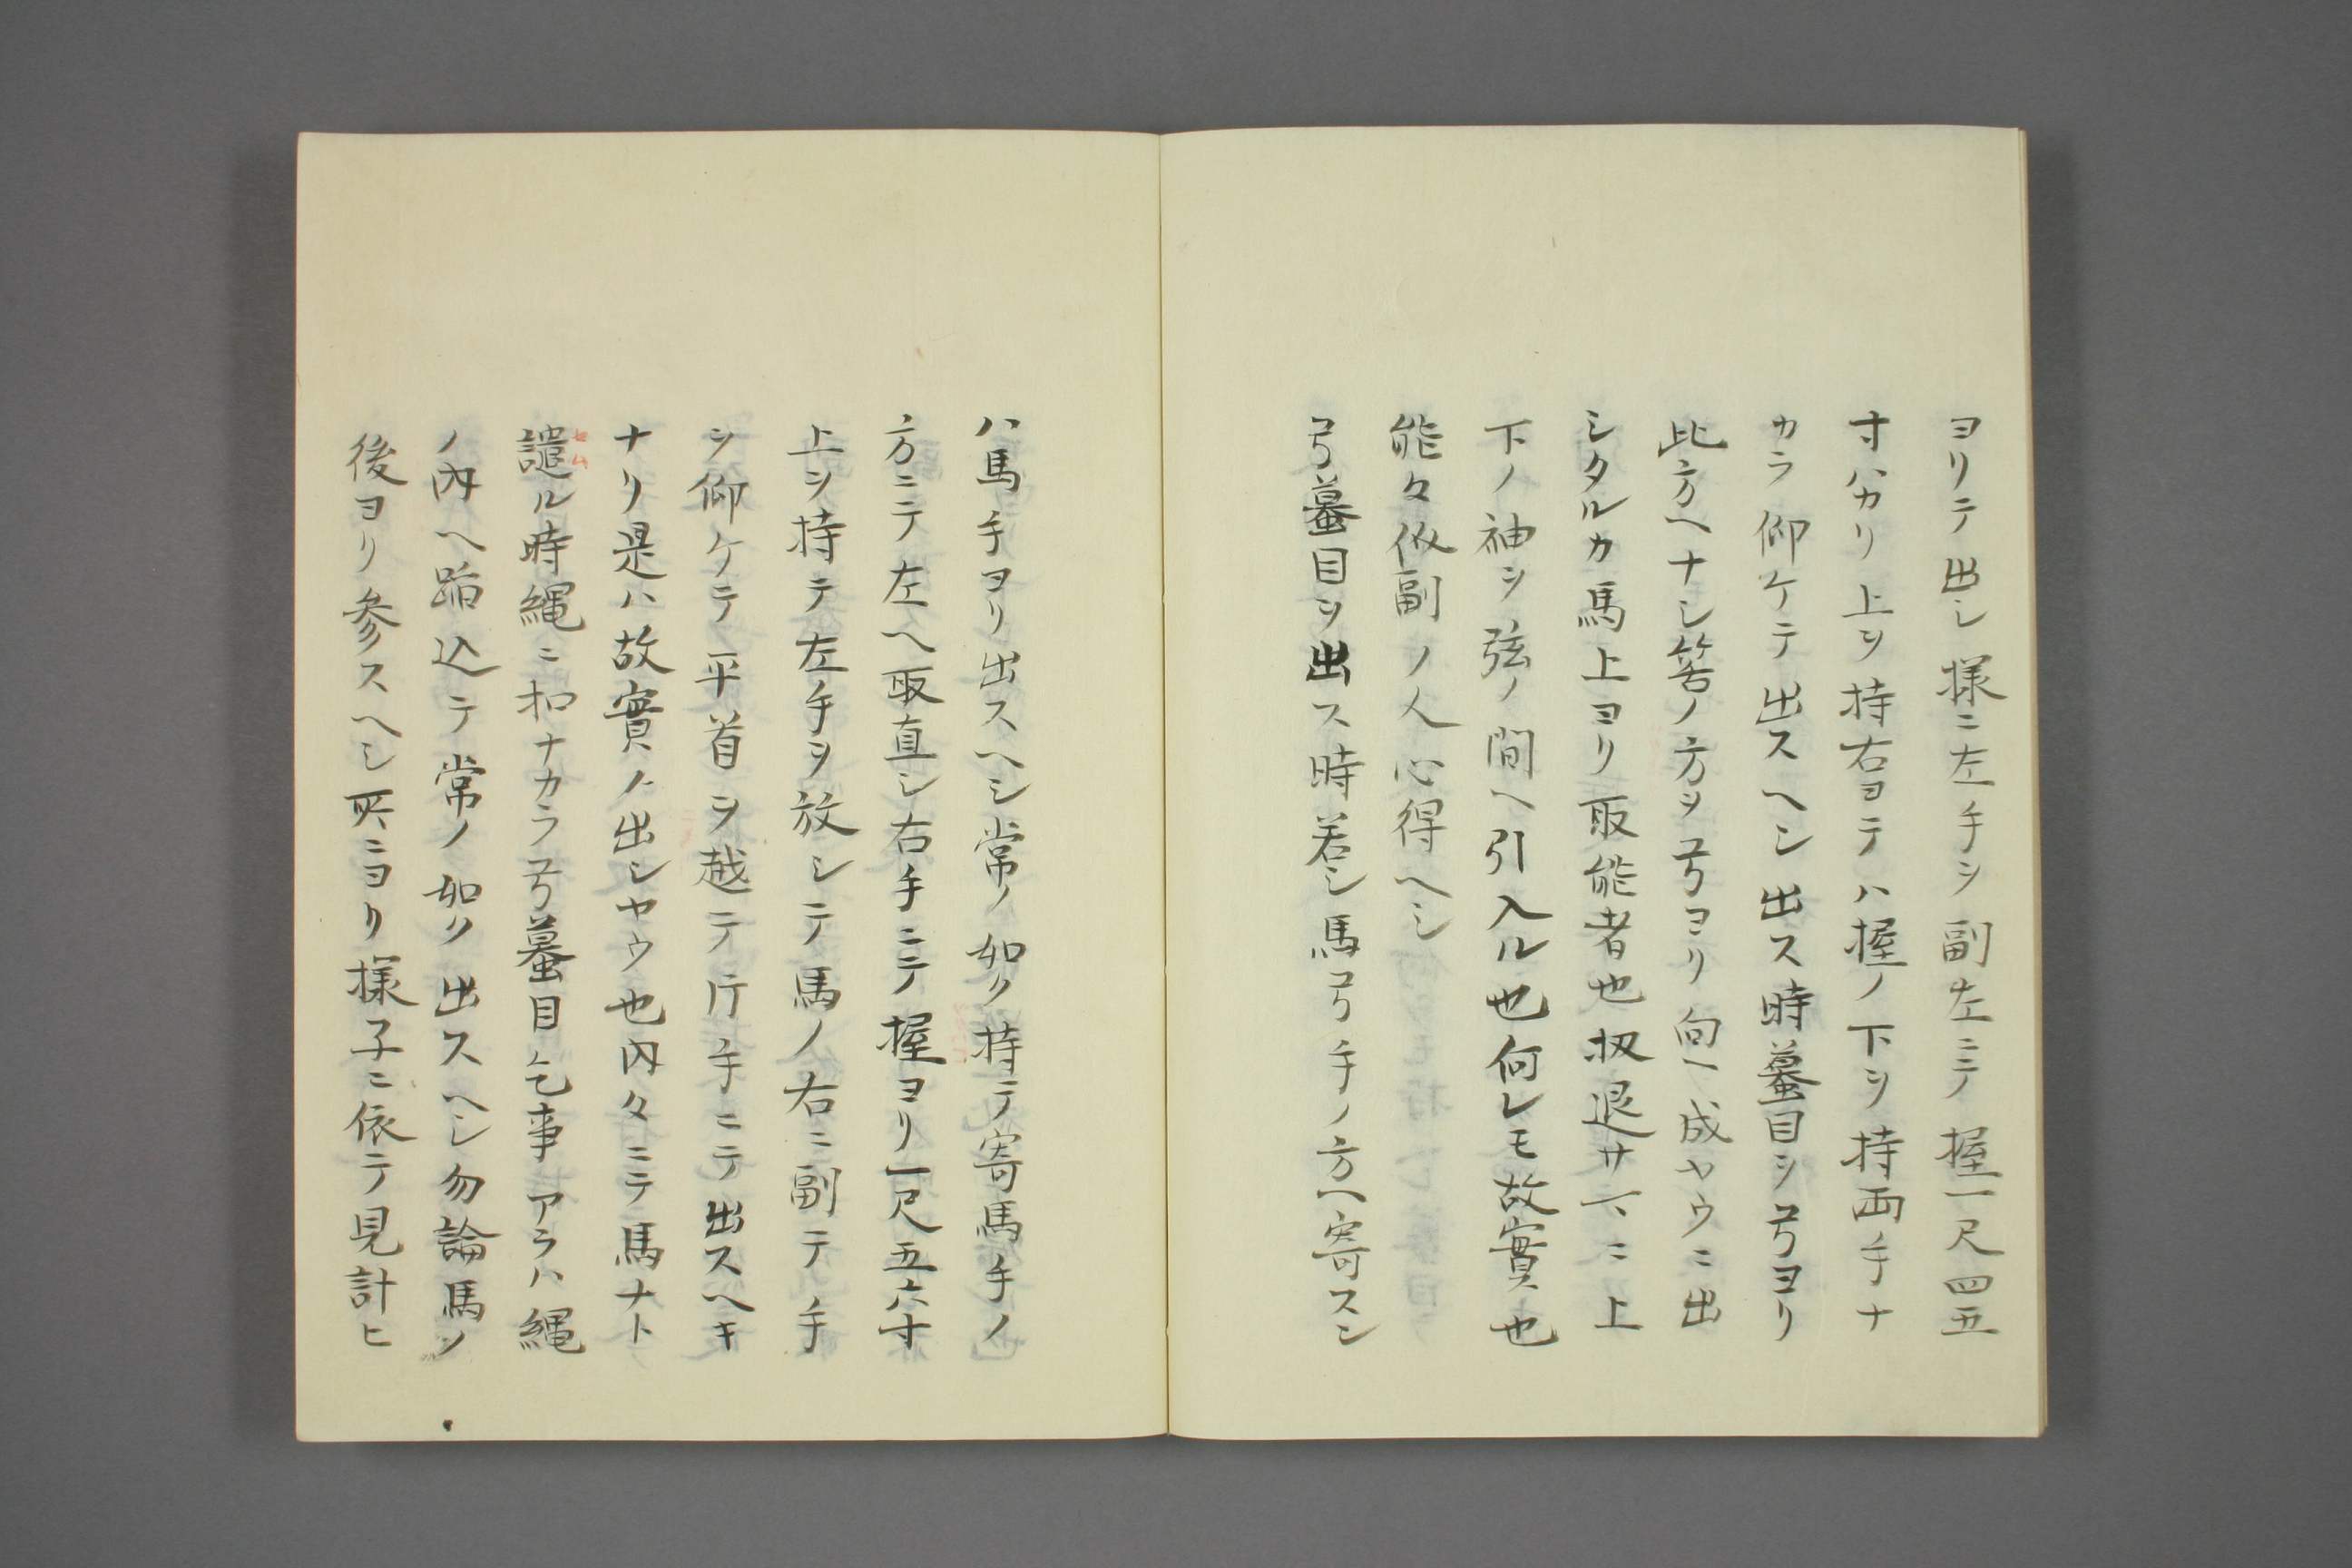 ヨリテ出シ様ニ左手ヲ副左ニテ握一尺四五
寸ハカリ上ヲ持右ヨテハ握ノ下ヲ持両手ナ
カラ仰ケテ出スヘシ出ス時蟇目ヲ弓ヨリ
此方ヘナシ筈ノ方ヲ弓ヨリ向ヘ成ヤウニ出
シタルカ馬上ヨリ取能者也扨退サマニ上
下ノ袖ヲ弦ノ間ヘ引入ル也何レモ故實也
能々似副ノ人心得ヘシ
弓蟇目ヲ出ス時若シ馬弓手ノ方ヘ寄スン
ハ馬手ヨリ出スヘシ常ノ如ク持テ寄馬手ノ
方ニテ左ヘ取直シ右手ニテ握ヨリ一尺五六寸
上ヲ持テ左手ヲ放シテ馬ノ右ニ副テ手
ヲ仰ケテ平首ヲ越テ片手ニテ出スヘキ
ナリ是ハ故實ノ出シヤウ也内々ニテ馬ナト
譴ル時縄ニ扣ナカラ弓蟇目乞事アラハ縄
セム
ノ内ヘ踏込テ常ノ如ク出スヘシ勿論馬ノ
後ヨリ参スヘシ所ニヨリ様子ニ依テ見計ヒ